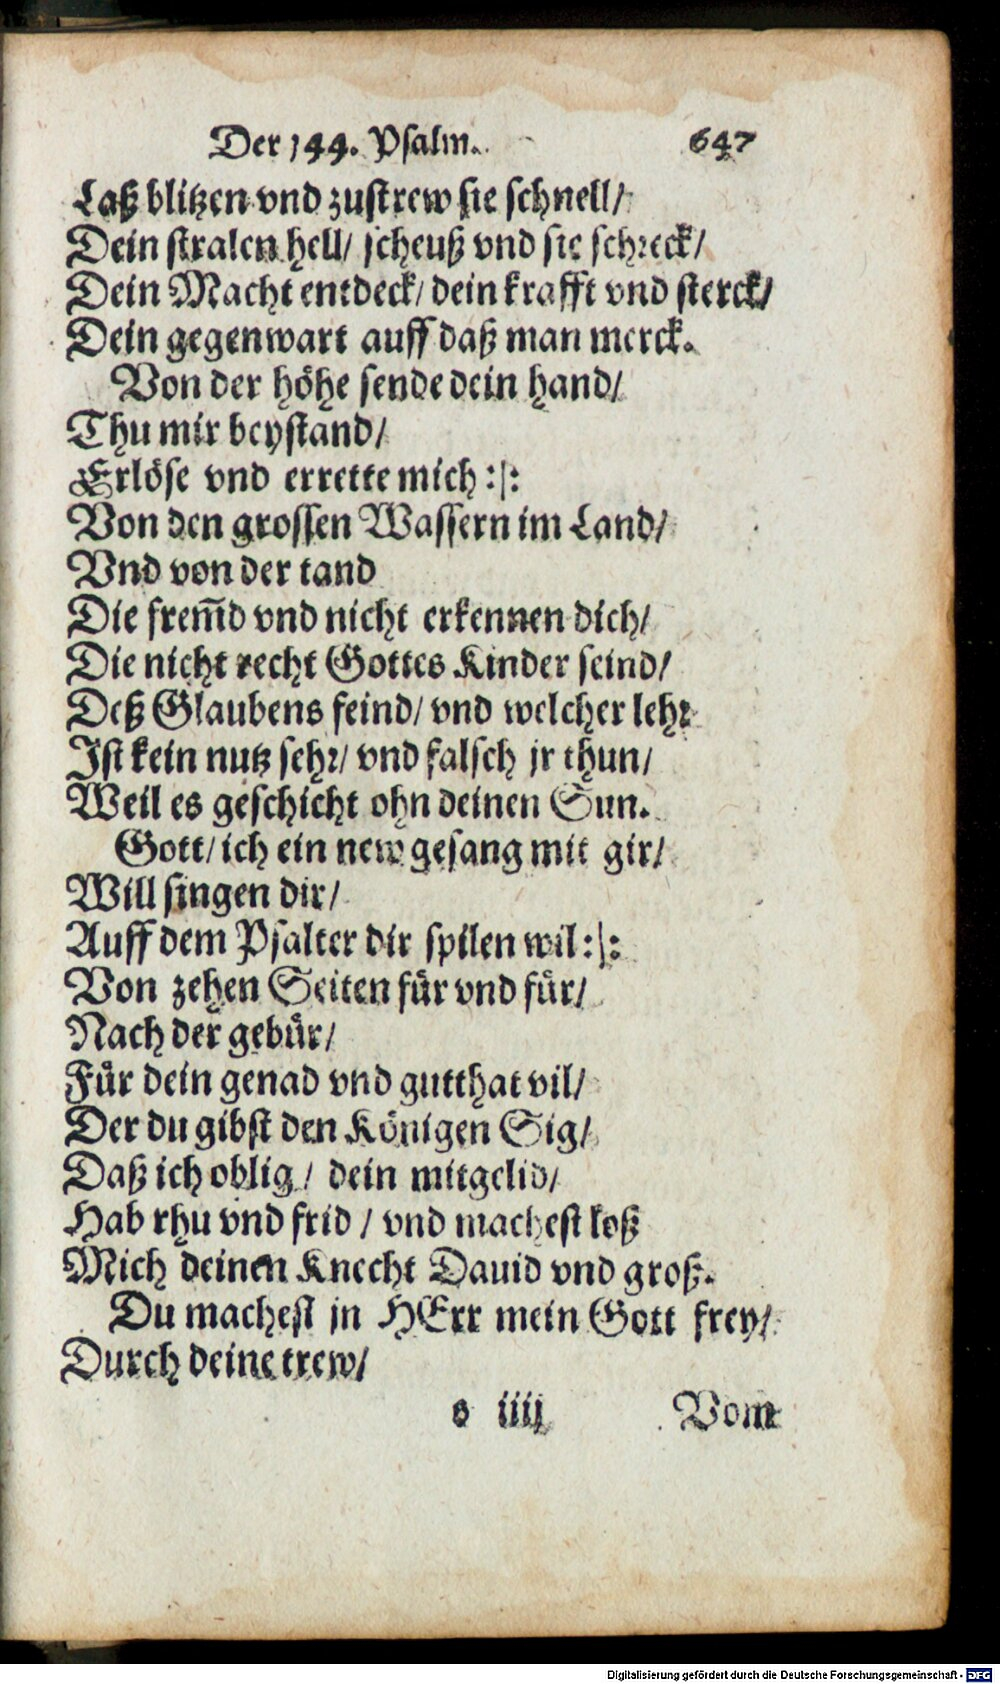 Der 144. Psalm. 647
Laß blitzen vnd zustrew sie schnell/
Dein stralen hell/ scheuß vnd sie schreck/
Dein Macht entdeck/ dein krafft vnd sterck/
Dein gegenwart auff daß man merck.
Von der höhe sende dein hand/
Thu mir beystand/
Erlöse vnd errette mich :|:
Von den grossen Wassern im Land/
Vnd von der tand
Die frem̃d vnd nicht erkennen dich/
Die nicht recht Gottes Kinder seind/
Deß Glaubens feind/ vnd welcher lehr
Ist kein nutz sehr/ vnd falsch jr thun/
Weil es geschicht ohn deinen Sun.
Gott/ ich ein new gesang mit gir/
Will singen dir/
Auff dem Psalter dir spilen wil :|:
Von zehen Seiten für vnd für/
Nach der gebür/
Für dein genad vnd gutthat vil/
Der du gibst den Königen Sig/
Daß ich oblig/ dein mitgelid/
Hab rhu vnd frid/ vnd machest loß
Mich deinen Knecht Dauid vnd groß.
Du machest jn HErr mein Gott frey/
Durch deine trew/
s iiij Vom
Digitalisierung gefördert durch die Deutsche Forschungsgemeinschaft - DFG